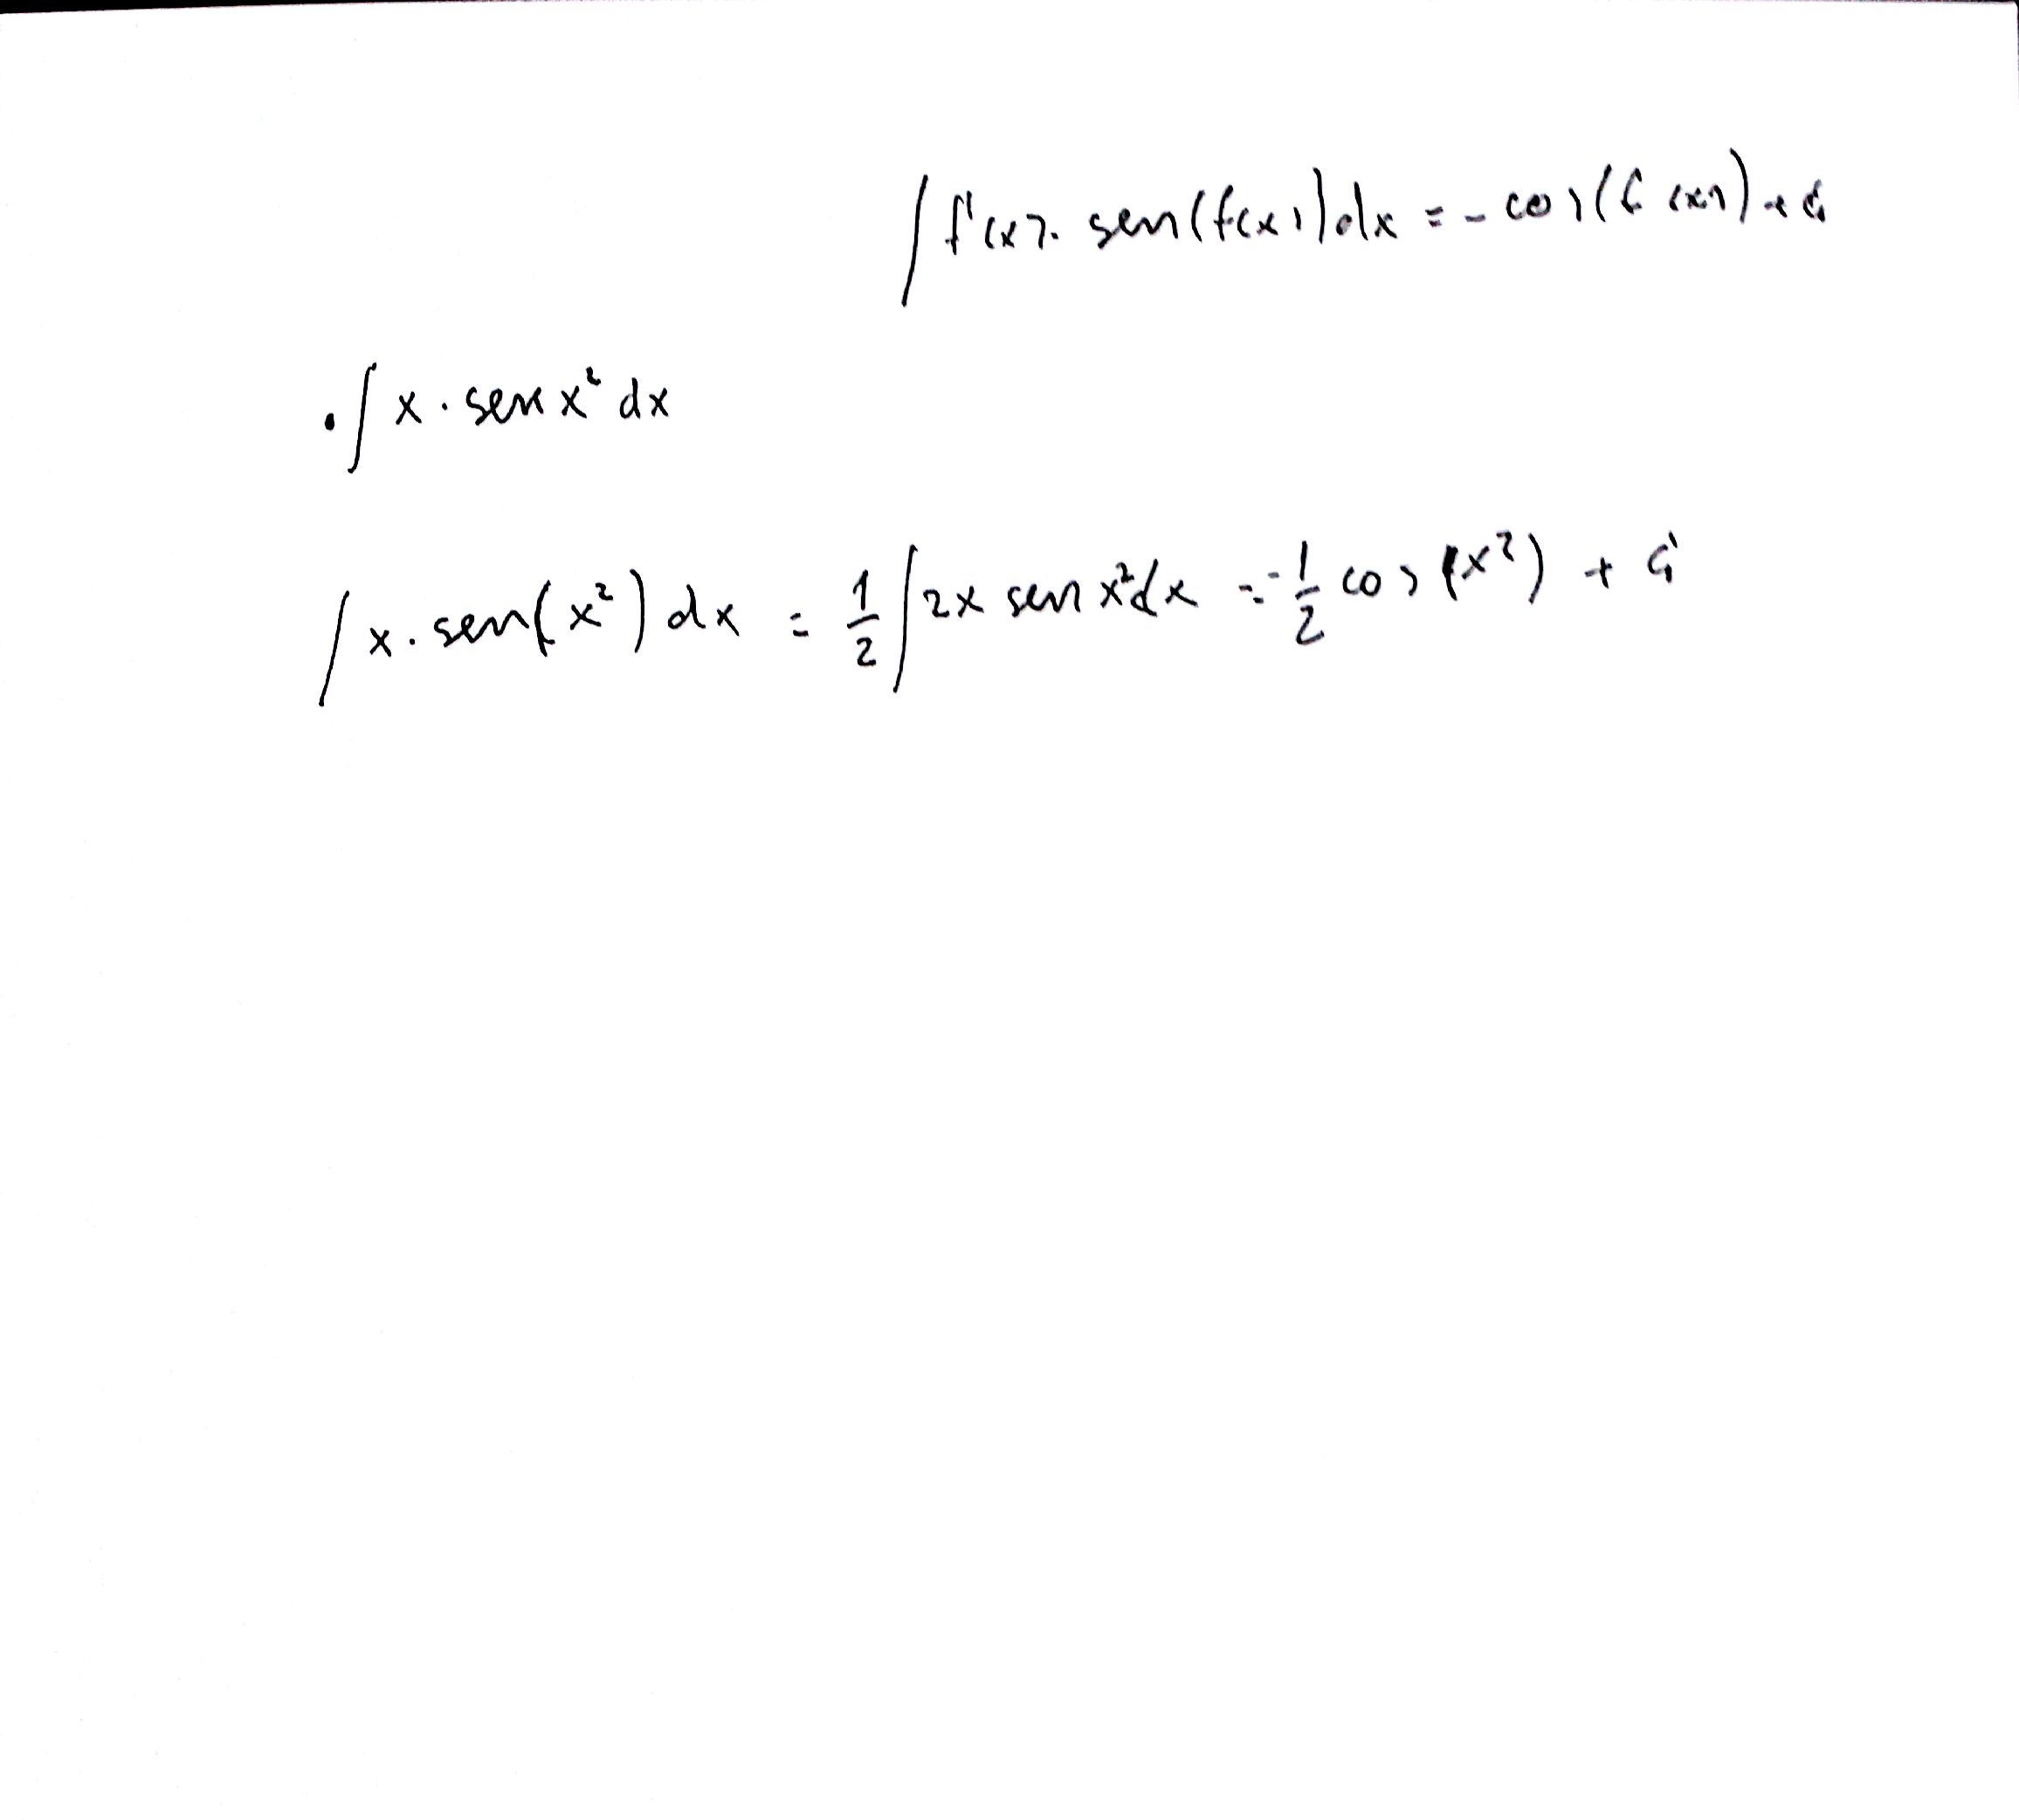 ∫ f'(x). sen(f(x)) dx = - cos(f(x)) + C
. ∫ x . sen x² dx
∫ x . sen(x²) dx = 1/2 ∫ 2x sen x² dx = -1/2 cos(x²) + C